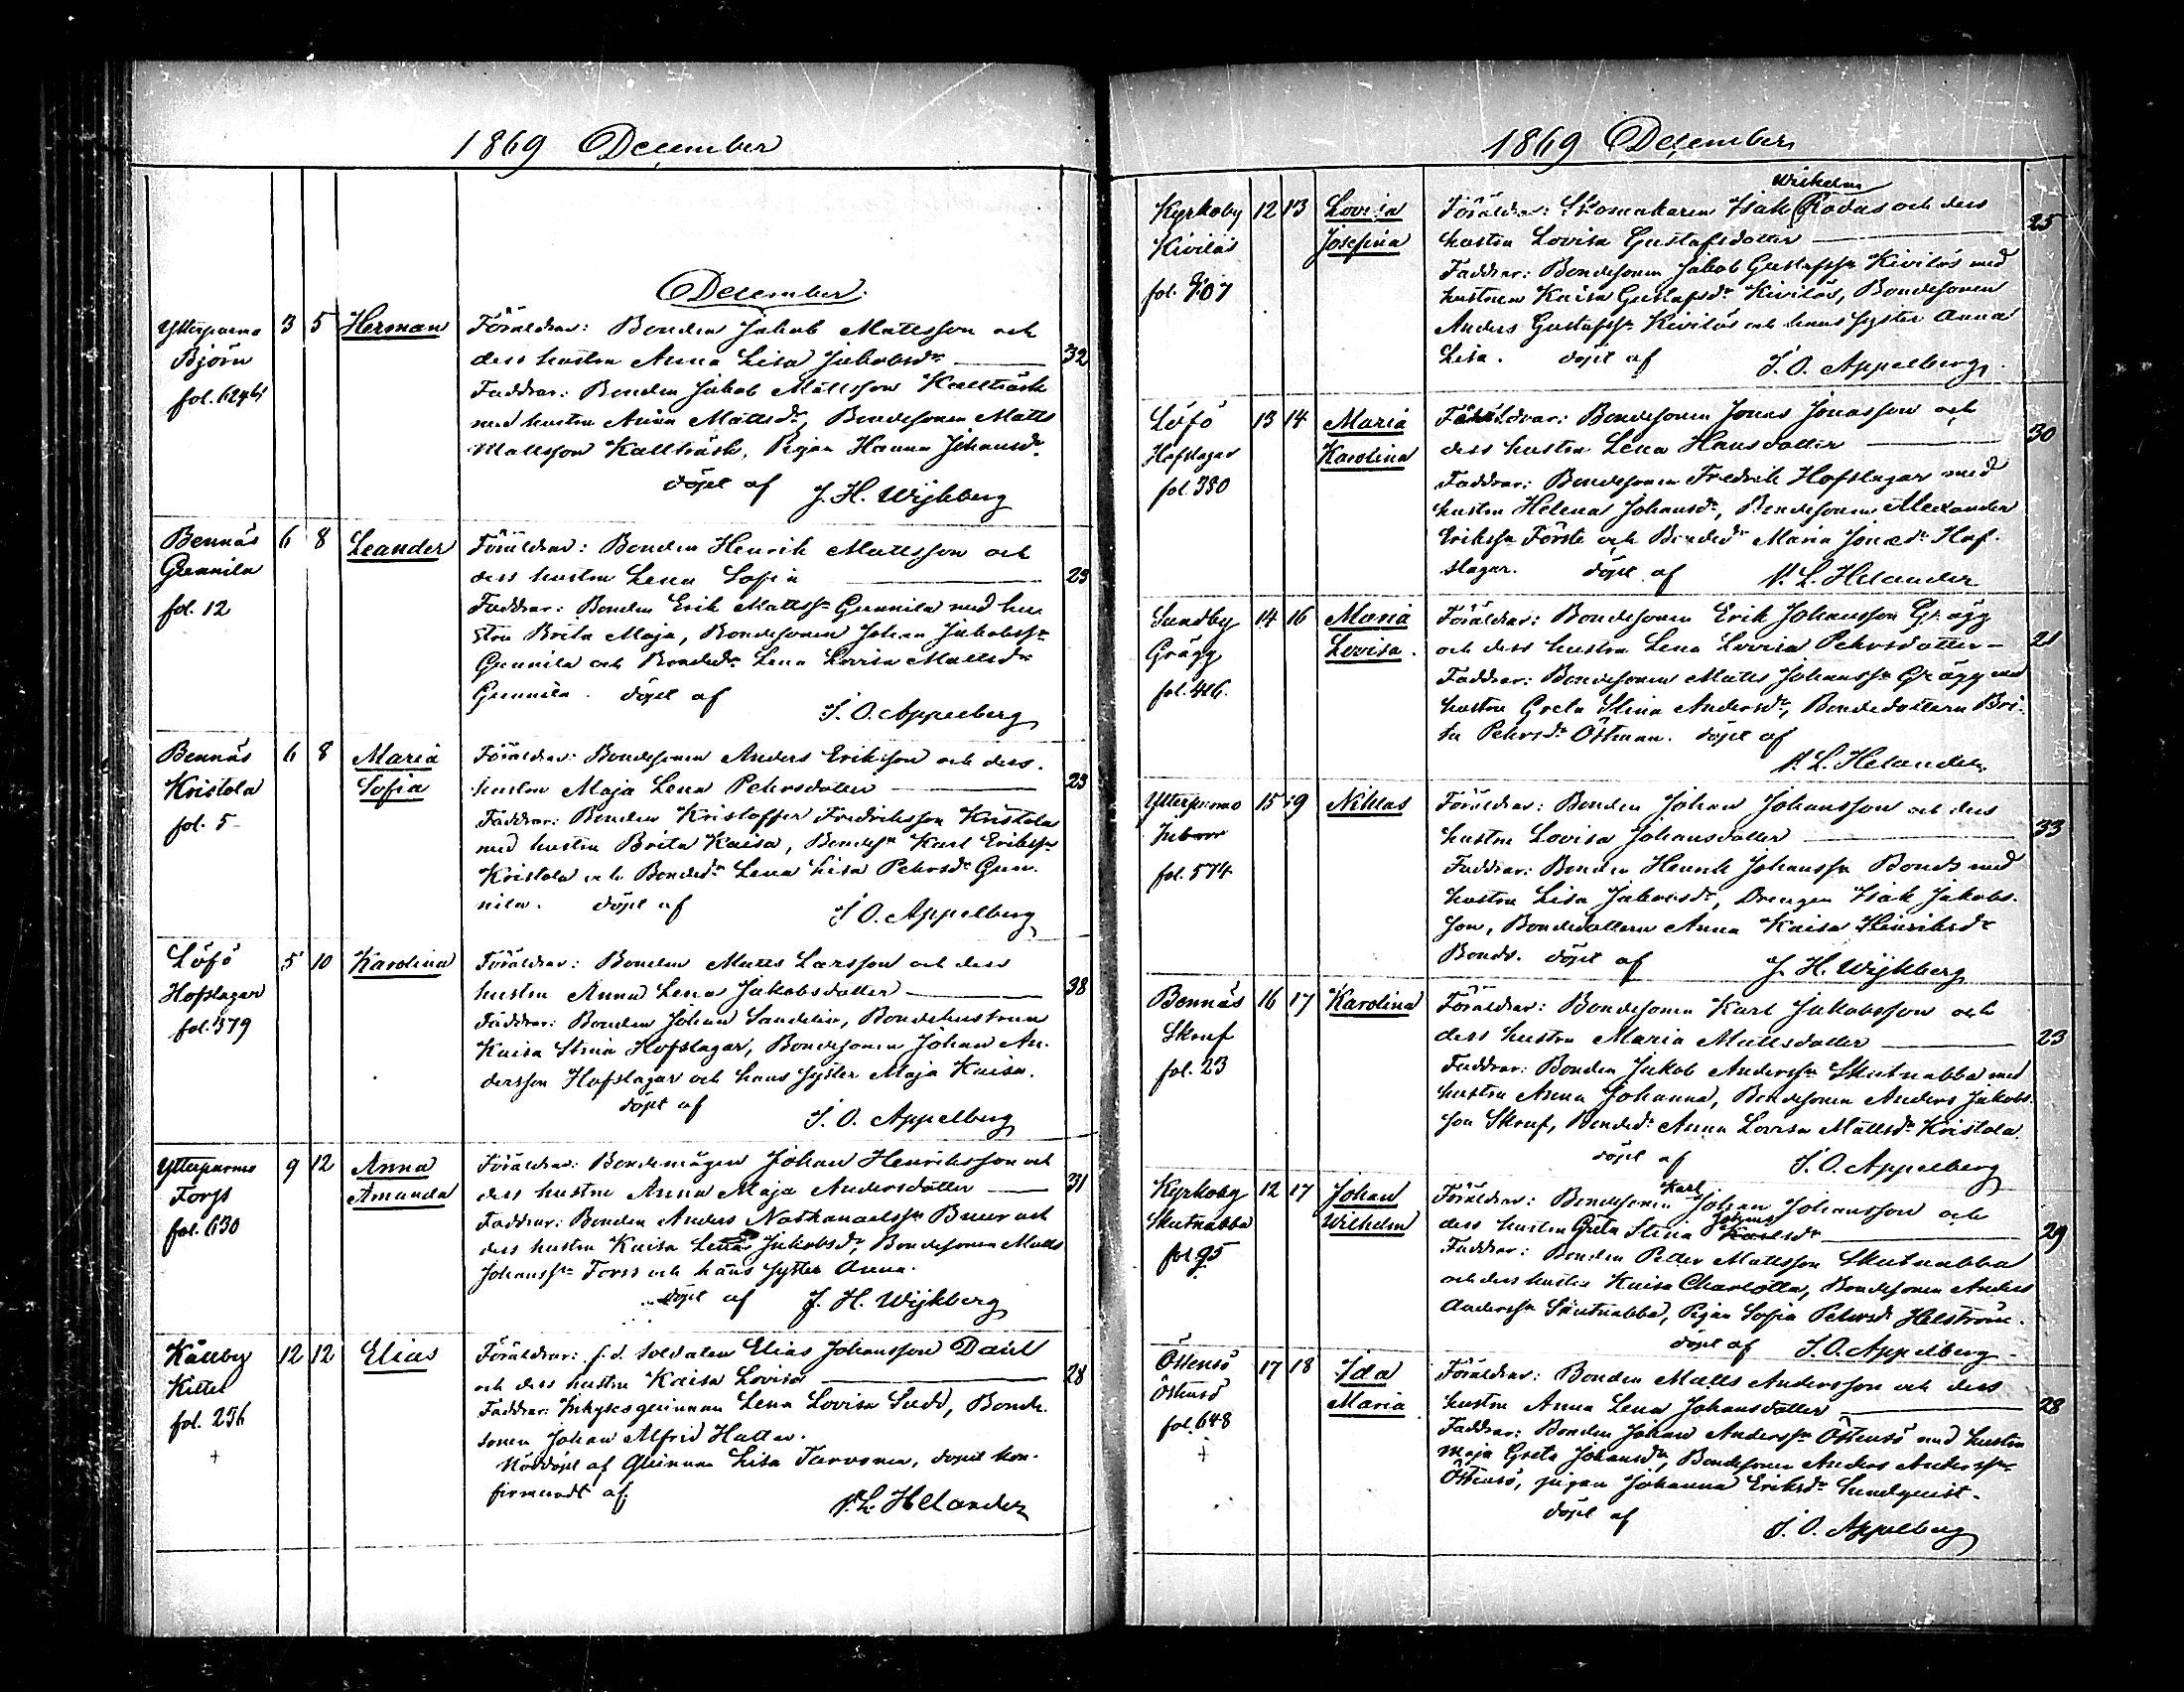 1869 December
December.
Ytterpurmo 3 5 Herman Föräldrar: Bonden Jakob Mattsson och
Björn dess hustru Anna Lisa Jakobsdr 32
fol. 624 Faddrar: Bonden Jakob Mattsson Kallträsk
med hustru Anna Mattsdr, Bondesonen Matts
Mattsson Kallträsk, Pigan Hanna Johansdr
döpt af J. H. Wijkberg
Bennäs 6 8 Leander Föräldrar: Bonden Henrik Mattsson och
Gunnila dess hustru Lena Sofia 23
fol. 12 Faddrar: Bonden Erik Mattss: Gunnila med hu-
stru Brita Maja, Bondesonen Johan Jakobss:
Gunnila och Bondedr Lena Lovisa Mattsdr
Gunnila. döpt af
I. O. Appelberg
Bennäs 6 8 Maria Föräldrar: Bondesonen Anders Eriksson och dess
Kristola Sofia hustru Maja Lena Pehrsdotter 23
fol. 5 Faddrar: Bonden Kristoffer Fredriksson Kristola
med hustru Brita Kaisa, Bondes: Karl Erikss:
Kristola och Bondedr Lena Lisa Pehrsdr Gun-
nila. döpt af I. O. Appelberg
Löfö 5 10 Karolina Föräldrar: Bonden Matts Larsson och dess
Hofslagar hustru Anna Lena Jakobsdotter 38
fol. 379 Faddrar: Bonden Johan Sandelin, Bondehustrun
Kaisa Stina Hofslagar, Bondesonen Johan An-
dersson Hofslagar och hans syster Maja Kaisa.
döpt af I. O. Appelberg
Ytterpurmo 9 12 Anna Föräldrar: Bondemågen Johan Henriksson och
Forss Amanda dess hustru Anna Maja Andersdotter 31
fol. 630 Faddrar: Bonden Anders Nathanaelss: och
dess hustru Kaisa Lena Jakobsdr, Bondesonen Matts
Johanss: Forss och hans syster Anna.
döpt af J. H. Wijkberg
Källby 12 12 Elias Föräldrar: f.d. Soldaten Elias Johansson
Kittel och dess hustru Kaisa Lovisa 28
fol. 256 Faddrar: Inhysesqvinnan Lena Lovisa Sudd, Bonde-
+ sonen Johan Alfrid
Nöddöpt af Qvinnan Lisa, dopet kon-
firmeradt af V. L. Helander
1869 December
Wilhelm
Kyrkoby 12 13 Lovisa Föräldrar: Skomakaren Isak Rodas och dess
Kivilös Josefina hustru Lovisa Gustafsdotter 25
fol. 707 Faddrar: Bondesonen Jakob Gustafss: Kivilös med
hustrun Kaisa Gustafsdr Kivilös, Bondesonen
Anders Gustafss: Kivilös och hans syster Anna
Lisa. döpt af I. O. Appelberg.
Löfö 13 14 Maria Föräldrar: Bondesonen Jonas Jonasson och
Hofslagar Karolina dess hustru Lena Hansdotter 30
fol. 380 Faddrar: Bondesonen Fredrik Hofslagar med
hustru Helena Johansdr, Bondesonen Alexander
Erikss: Förste och Bondedr Maria Jonasdr Hof-
slagar. döpt af V. L. Helander
Sundby 14 16 Maria Föräldrar: Bondesonen Erik Johansson Grägg
Grägg Lovisa. och dess hustru Lena Lovisa Pehrsdotter 21
fol. 416. Faddrar: Bondesonen Matts Johanss: Grägg med
hustru Greta Stina Andersdr, Bondedottern Bri-
ta Pehrsdr Östman. döpt af
V. L. Helander
Ytterpurmo 15 19 Niklas Föräldrar: Bonden Johan Johansson och dess
hustru Lovisa Johansdotter 33
fol. 574 Faddrar: Bonden Henrik Johansson Bonds med
hustru Lisa Jakobsdr, Drengen Isak Jakobs-
son, Bondedottern Anna Kaisa Hinriksdr
Bonds. döpt af J. H. Wijkberg
Bennäs 16 17 Karolina Föräldrar: Bondesonen Karl Jakobsson och
Skruf dess hustru Maria Mattsdotter 23
fol. 23 Faddrar: Bonden Jakob Anderss: Skutnabba med
hustru Anna Johanna, Bondesonen Anders Jakobs-
son Skruf, Bondedr Anna Lovisa Mattsdr Kristola.
döpt af I. O. Appelberg
Karl
Kyrkoby 12 17 Johan Föräldrar: Bondesonen Johan Johansson och
Johans
Skutnabba Wilhelm dess hustru Greta Stina Karlsdr 29
fol 95 Faddrar: Bonden Petter Mattsson Skutnabba
och dess hustru Kaisa Charlotta, Bondesonen Anders
Anderss: Skutnabba, Pigan Sofia Pehrsdr Helström.
döpt af I. O. Appelberg
Östensö 17 18 Ida Föräldrar: Bonden Matts Andersson och dess
Östensö Maria hustru Anna Lena Johansdotter 28
fol. 648 Faddrar: Bonden Johan Anderss: Östensö med hustru
+ Maja Greta Johansdr, Bondesonen Anders Anderss:
Östensö, pigan Johanna Eriksdr Sundqvist.
döpt af
I. O. Appelberg